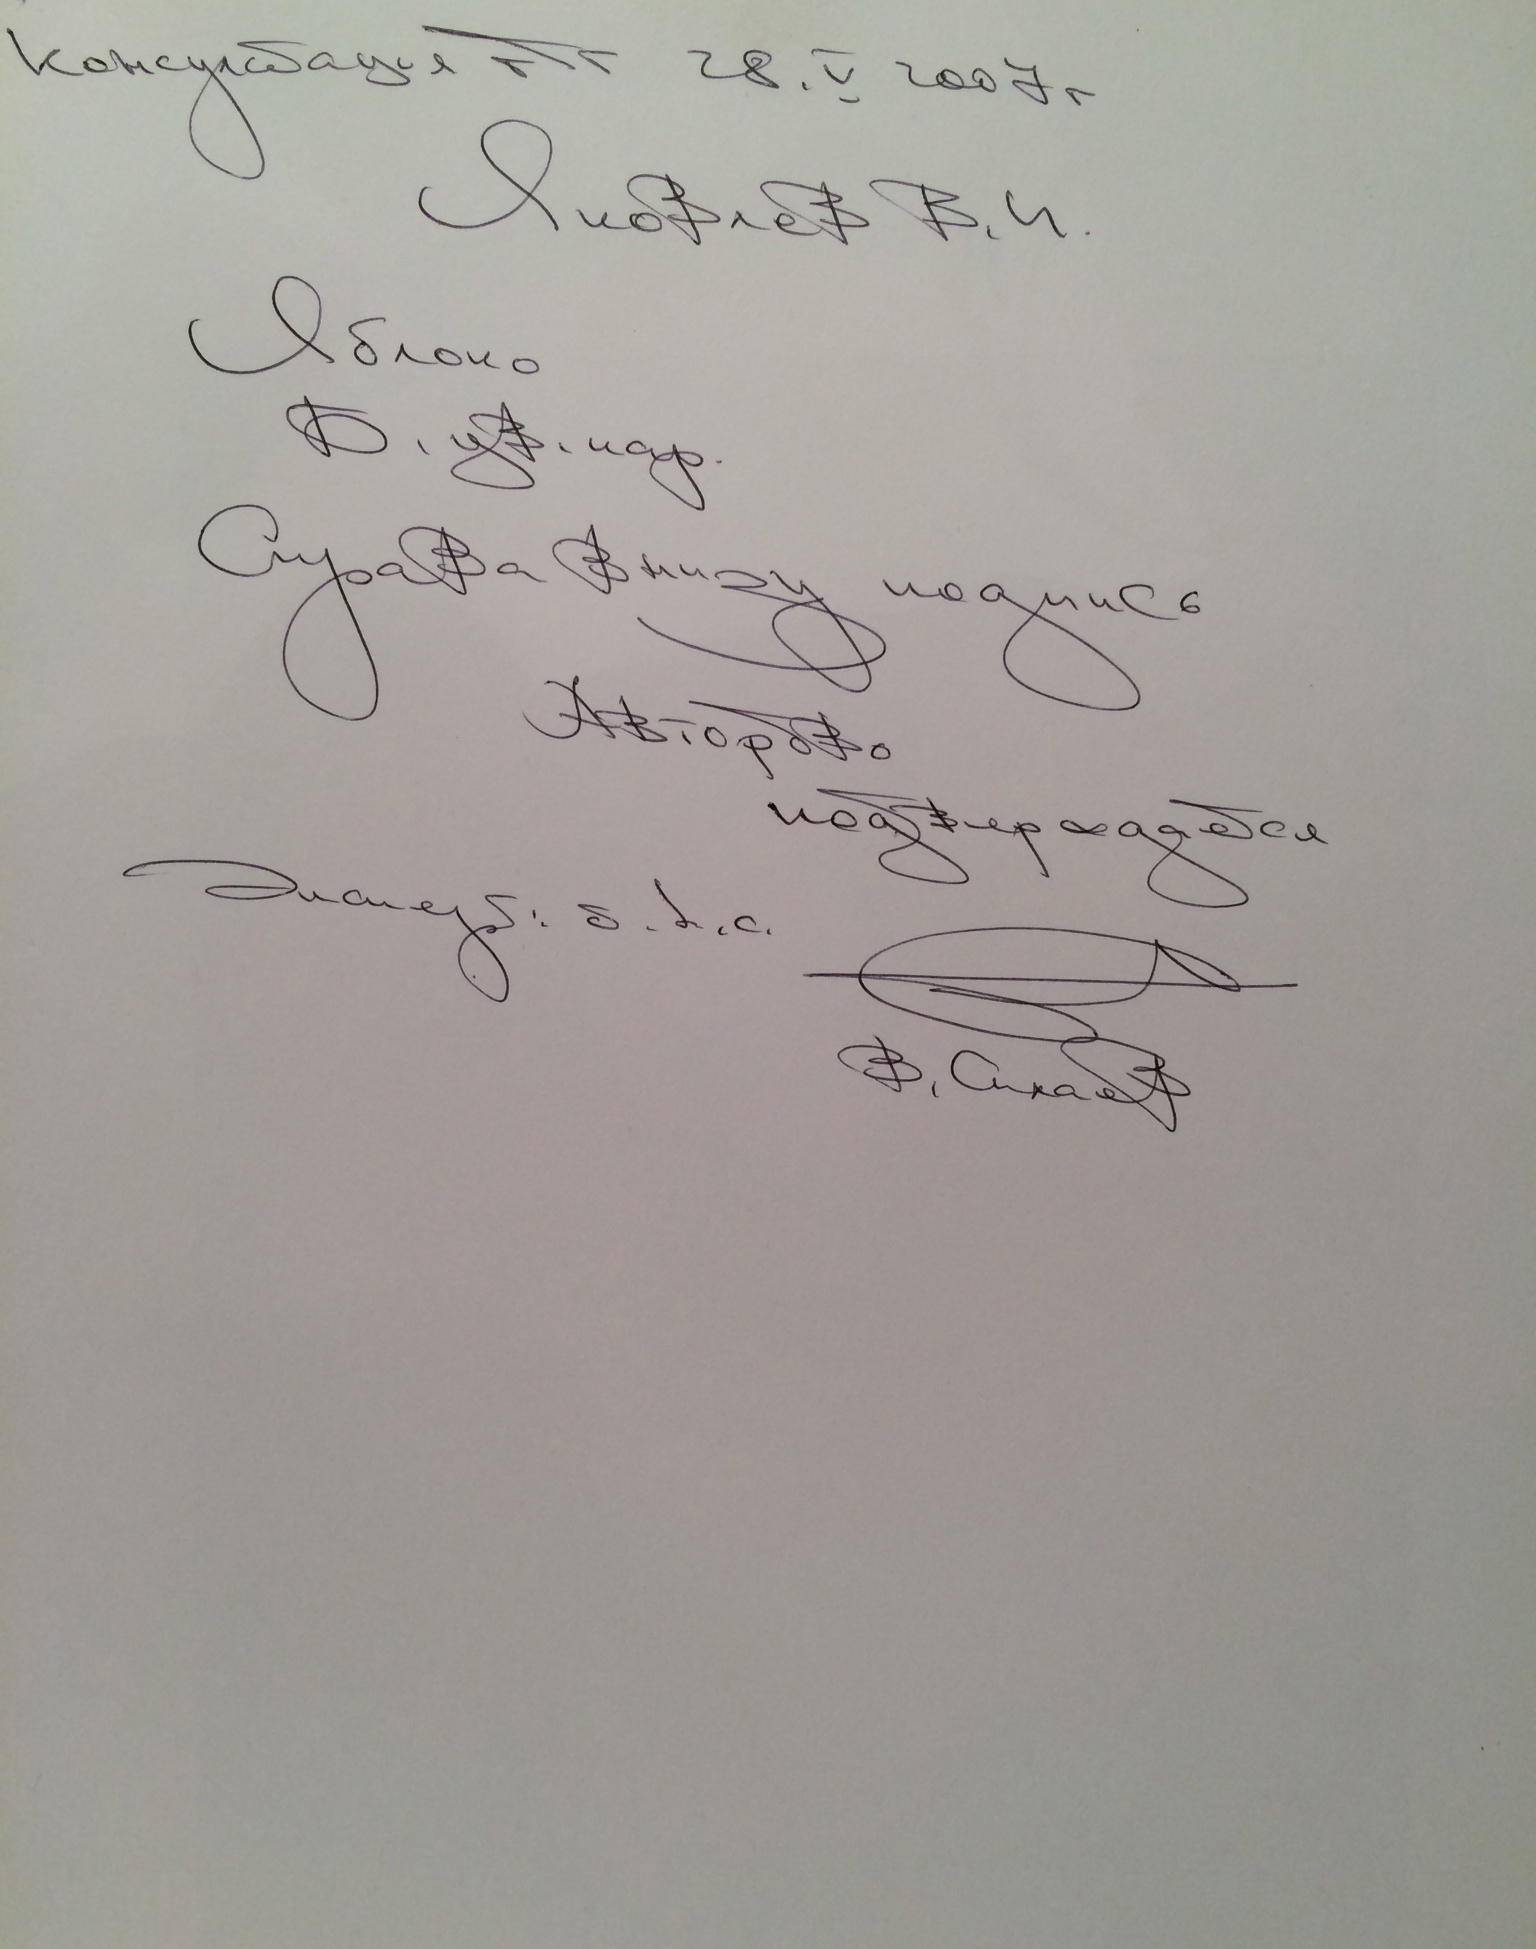 Консультация ГТГ 28.V 2007г
Яковлев В.И.
Яблоко
Б., цв. кар.
Справа внизу подпись
Авторство
подтверждается
Экспер
В. Силаев